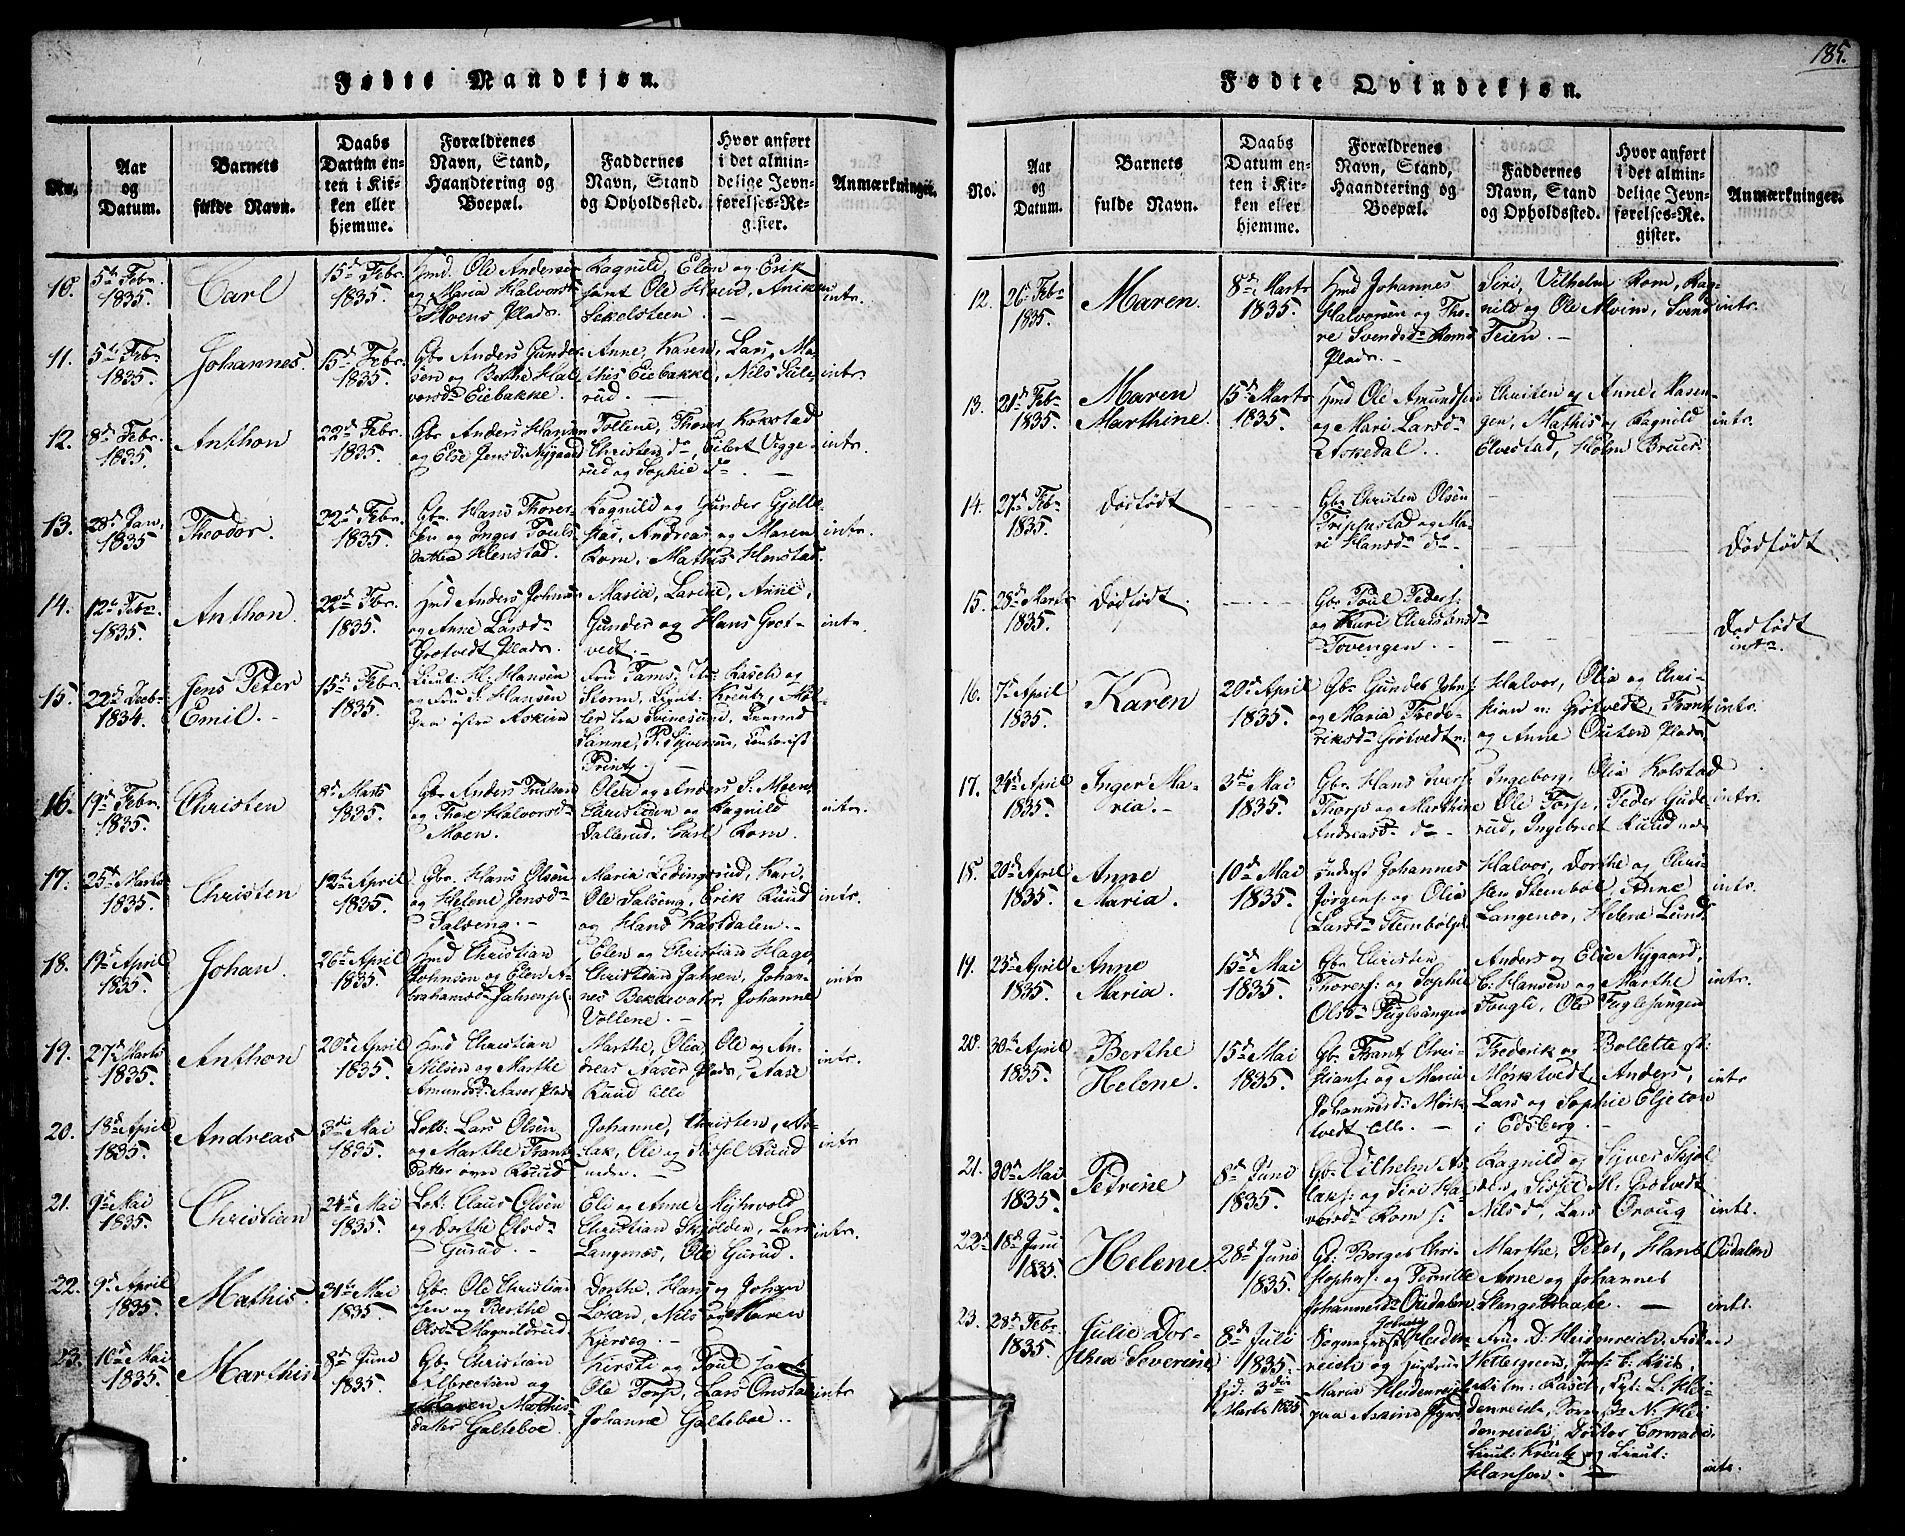 185.
Fødte Mandkjøn.
No.
Aar
og
Datum.
Barnets
fulde Navn.
Daabs
Datum en-
ten i Kir-
ken eller
hjemme.
Forældrenes
Navn, Stand,
Haandtering og
Boepæl.
Faddernes
Navn, Stand
og Opholdssted.
Hvor anført
i det almin-
delige Jevn-
førelses-Re-
gister.
Anmærkninger.
10. 5te Febr. 1835.
Carl
15d Febr. 1835.
Hmd. Ole Andersen
og Maria Halvorsd
Moens Plads.
Ragnild, Elen og Erik
samt Ole Hoeid, Aniken
intr.
11. 5te Febr. 1835.
Johannes.
15d Febr. 1835.
Gbr. Anders Gunder-
sen og Berthe Hal-
vorsdr Eiebakke.
Anne, Karen, Lars, Ma-
this Eiebakke, Nils
rud.
intr.
12. 8d Febr. 1835.
Anthon
22d Febr. 1835.
Gbr Anders Hansen
og Else Jensd: Nygaard
Tollene, Thomes Kokstad
Christen do, Eilert Vigge-
rud og Sophie do
intr.
13. 28d Jan. 1835
Theodor.
22d Febr. 1835.
Gbr. Hans Thores-
sen og Inger Pouls-
datter Henstad.
Ragnild og Gunder Gjelle-
stad, Andreas og Maren
Rom, Mathis Henstad.
intr.
14. 12te Febr. 1835.
Anthon.
22d Febr. 1835.
Hmd Anders Johnsen
og Anne Larsdr
Grøtvedt Plads.
Maria, Larine, Anne,
Gunder og Hans Grøt-
vedt.
intr.
15. 22d Decbr. 1834.
Jens Peter
Emil.
15d Febr. 1835.
Lieut: H. Hansen
og Fru S. Hansen
østre Askim
Printz.
16. 19d Febr. 1835.
Christen
8d Marts 1835.
Gbr Anders Poulsen
og Thore Halvorsd
Moen.
Olea og Anders S. Moen
Christian og Ragnild
Dallerud, Carl Rom.
intr.
17. 25d Marts 1835.
Christen
12te April 1835.
Gbr. Hans Olsen
og Helene Jensdr
Dalseng.
Maria Ledingsrud, Kari,
Ole Dalseng, Erik Ruud
og Hans Kastdalen.
intr.
18. 19d April 1835.
Johan.
26de April 1835.
Hmd Christian
Johnsen og Elen A-
brahamsdr Jahren
Elen og Christian Hage,
Christian Jahren, Johan-
nes Bekkevater, Johanne
Vollene.
intr
19. 27d Marts 1835.
Anthon
20d April 1835.
Hmd Christian
Nilsen og Marthe
Amundsd: Aaser Plads
Marthe, Olia, Ole og An-
dreas Aaser Plads, Aase
Ruud Eie
intr.
20. 18d April 1835.
Andreas
3die Mai 1835.
Lott: Lars Olsen
og Marthe Frants-
datter øvre Ruud
Johanne, Christen, As-
lak, Ole og Sissel Ruud
nedre.
intr
21. 9de Mai 1835.
Christian
24d Mai 1835.
Lott: Claus Olsen
og Dorthe Olsdr
Gurud.
Eli og Anne
Christian Skjolden, Lars
Langenæs, Ole Gurud.
intr.
22. 9d April 1835.
Mathis.
31te Mai 1835.
Gbr. Ole Christian-
sen og Berthe
Olsdr Magnildrud
Dorthe, Hans og Johan
Løken, Nils og Maren
Kjerseg.
23. 10de Mai 1835.
Marthis
8d Juni 1835.
Gbr. Christian
Elbrectsen og
Maren Mathis-
datter Galteboe.
Kirsti og Poul
Ole Torp, Lars Onstad
Johanne Galteboe.
intr
Fødte Qvindekjøn.
No.
Aar
og
Datum.
Barnets
fulde Navn.
Daabs
Datum en-
ten i Kir-
ken eller
hjemme.
Forældrenes
Navn, Stand,
Haandtering og
Boepæl.
Faddernes
Navn, Stand
og Opholdssted.
Hvor anført
i det almin-
delige Jevn-
førelses-Re-
gister.
Anmærkninger.
12. 26d Febr 1835.
Maren.
8de Marts 1835.
Hmd Johannes
Halvorsen og Tho-
re Svendsdr Roms
Plads.
Siri, Vilhelm Rom, Rag-
nild og Ole Moim, Svend
Teien.
intr.
13. 21d Febr 1835.
Maren
Marthine.
15d Marts 1835.
Hmd Ole Amundsen
og Mari Larsdr
Askedal.
Christen og Anne Masen-
gen, Mathis og Ragnild
Elvestad, Holm Bruer.
intr.
14. 27d Febr 1835.
Dødfødt
Gbr Christen Olsen
Trippestad og Ma-
ri Hansdr do
Dødfødt
15. 28d Marts 1835.
Dødfødt.
Gbr Poul Peders:
og Kari Christensdr
Tovengen.
Dødfødt
intr
16. 7d April 1835.
Karen
20d April 1835.
Gbr Gunder Johns:
og Maria Frede-
riksdr Grøtvedt
Halvor, Olia og Chri-
stian n: Grøtvedt, Frants
og Anne Ousten Plads,
intr.
17. 24d April 1835.
Inger Ma-
ria.
3die Mai 1835.
Gbr. Hans Ivers:
Thorp og Marthine
Andreasdr do
Ingeborg, Olia Kolstad
Ole Torp, Peder Gude-
rud, Ingebret Ruud ned
intr.
18. 20d April 1835.
Anne
Maria.
10de Mai 1835.
Inderst Johannes
Jørgens: og Olia
Larsdr Stenbøl
Halvor, Dorthe og Chri-
sten Stenbøl, Anne
Langenæs, Helene Lund
intr.
19. 23d April 1835.
Anne
Maria.
15d Mai 1835.
Gbr Christen
Thores: og Sophie
Olsdr Fuglsangen
Anders og Else Nygaard,
C: Hansen og Marthe
Fougli, Ole Fuglesangen
intr.
20. 30te April 1835.
Berthe
Helene.
15d Mai 1835.
Gbr Frantz Chri-
stians: og Maria
Johannesd: Mørk-
tvedt Eie.
Frederik og Bollette
Mørktvedt, Anders,
Lars og Sophie Eljeton
i Edsberg.
intr
21. 30te Mai 1835.
Petrine
8d Juni 1835.
Gbr Vilhelm As-
laks: og Siri Ha-
vorsdr Rom
Ragnild og Syver Skjol-
den, Sissel M: Grøtvedt
Nilsd, Lars Oroug
intr.
22. 18d Juni 1835.
Helene
28d Juni 1835.
Gb: Borger Chri-
stophs: og Pernille
Johannesdr Oudalen.
Marthe, Peter, Hans Oudalen
Anne og Johannes
Slangebraate.
intr.
23. 28d Febr. 1835
Julie Dor-
thea Severine
8d Juli 1835.
hjd: 3die
Marts 1835
Sogneprest Heiden-
reich og Hustrue
Maria Heidenreich
paa Askim Pgrd
Frue D: Heidenreich,
Wettergreen,
denreich, N: Hei-
denreich, Doctor Conradi,
Lieut: Kreutz og Lieut:
Hansen.
intr.